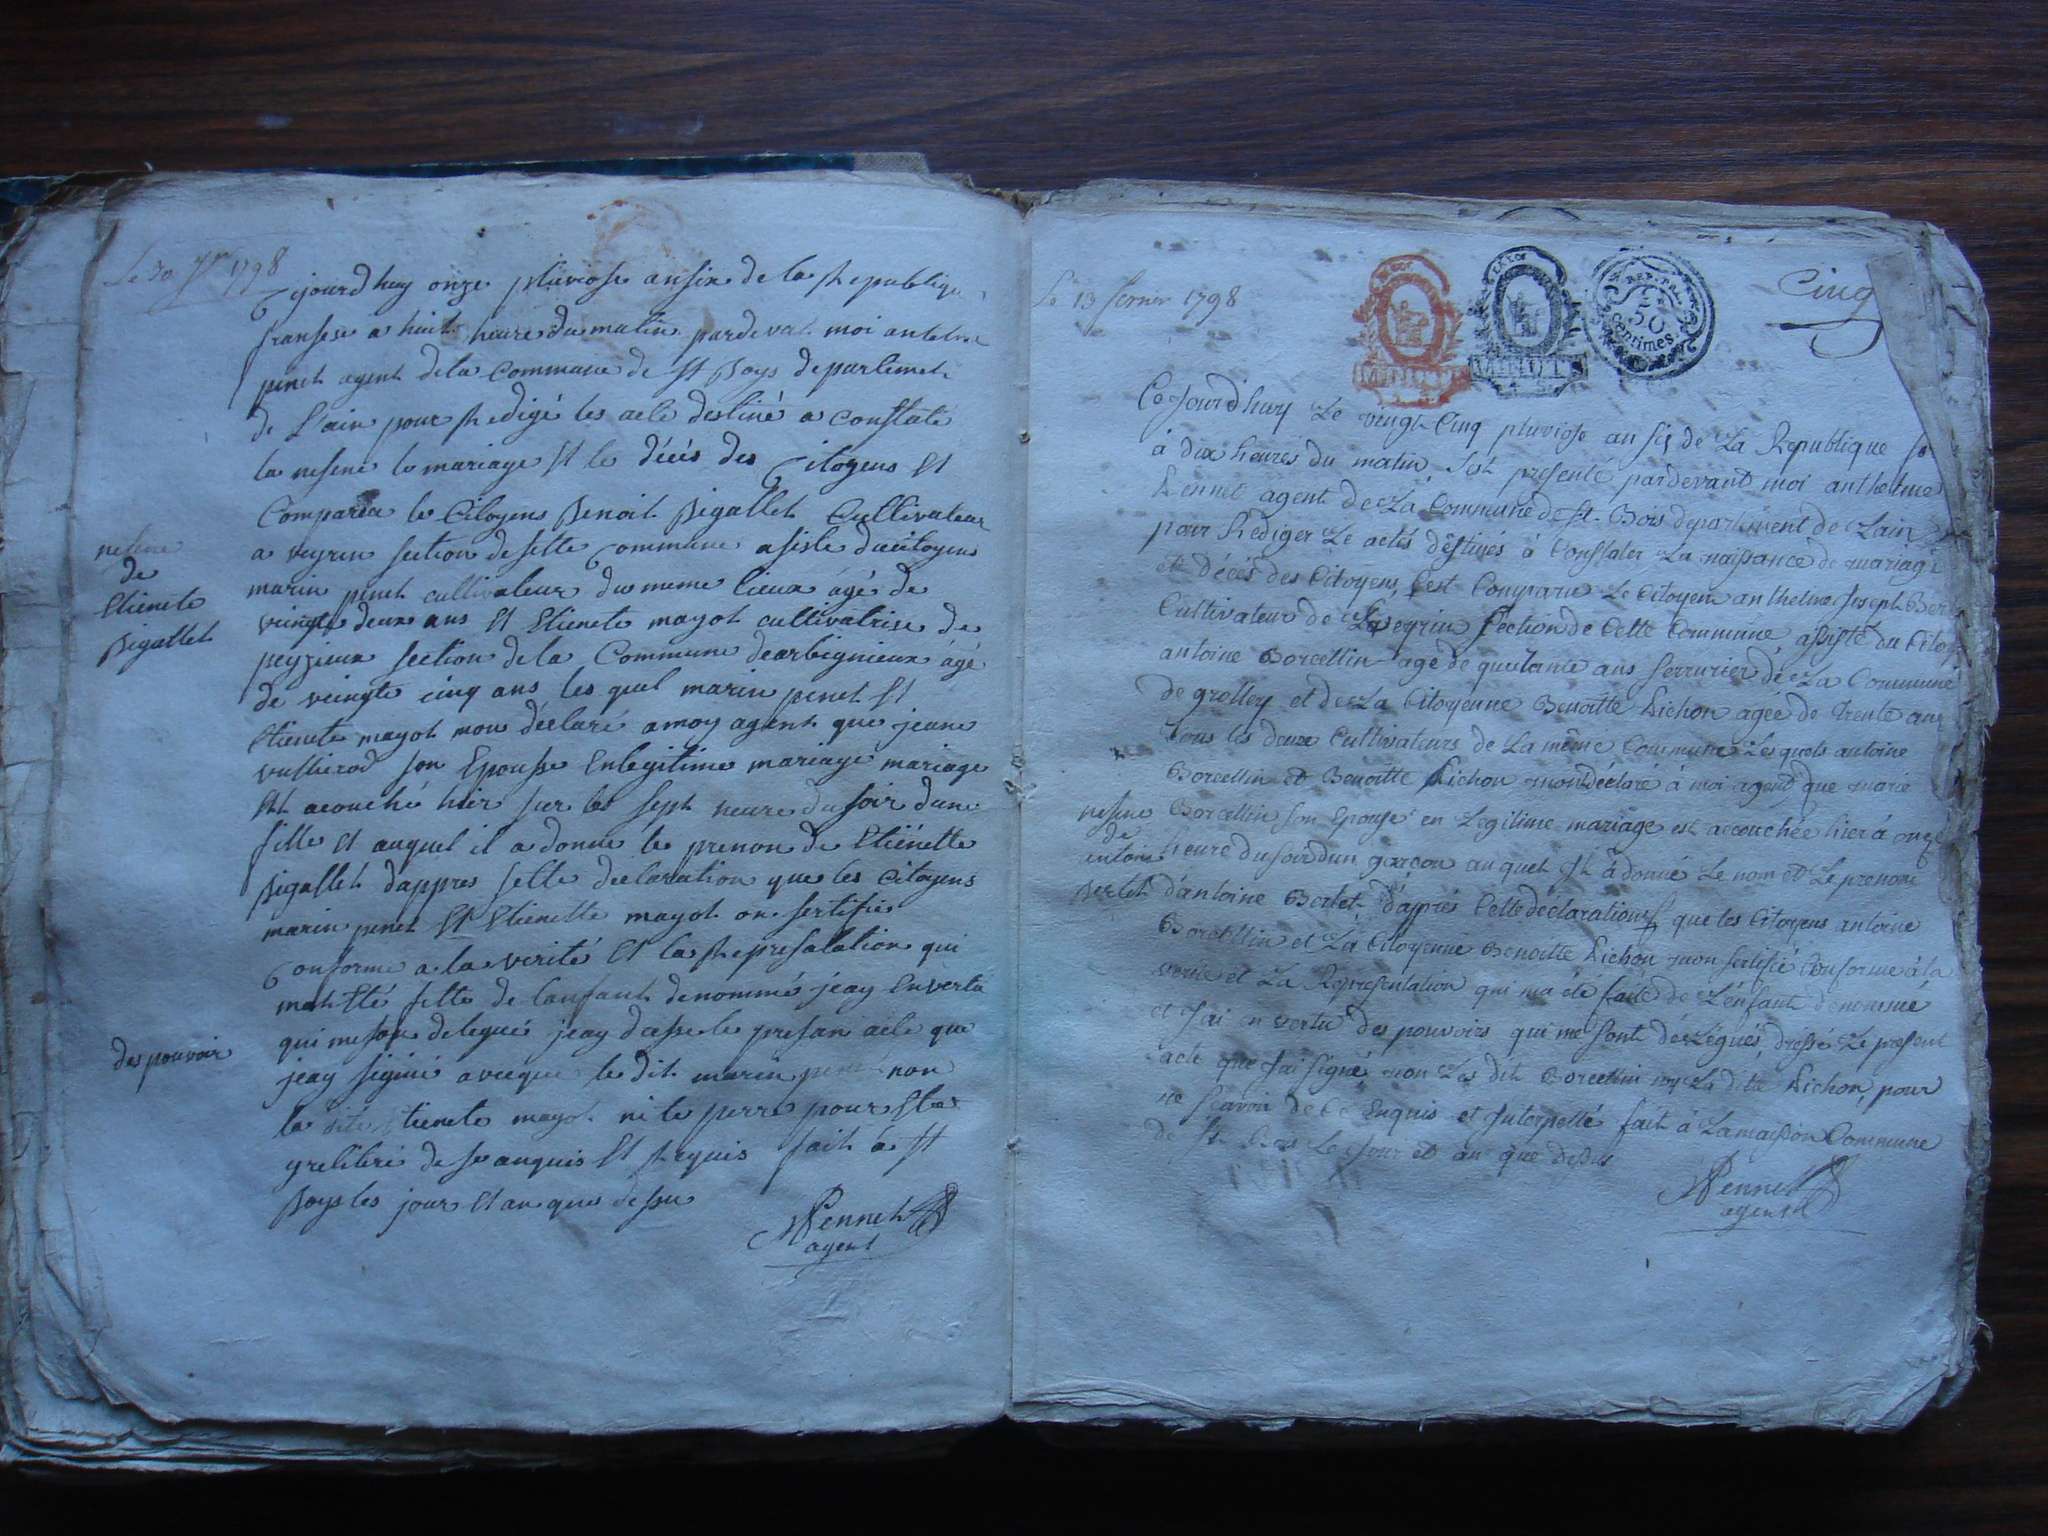 Le 30 Jer 1798
Cejourdhuy onze pluviose an six de la Republique
franses a huit heure du matin pardevat moi antelme
penet agent de la Commune de St Boys departemet
de L'ain pour Redigé les acte destiné a Constaté
la nesene le mariage Et le décès des Citoyens Et
Comparu le Citoyens Benoit Bigallet Cultivateur
a veyrin section de sette Commune asisté du citoyens
marin penet cultivateur du meme lieux agé de
veingte deux ans Et Etienete mayot cultivatrise de
peyzieux section de la Commune dearbignieux agé
de veingte cinq ans les quel marin penet Et
Etienete mayot mon déclaré a moy agent que jeane
vullierod son Epousse En legitime mariage mariage
Et acouché hier sur les sept heure du soir dune
fille Et auquel il a donné le prenon de Etiénette
Bigallet dappres sette declaration que les Citoyens
marin penet Et Etienette mayot on sertifié
Conforme a la verité Et la Represatation qui
mat Eté fette de lanfant denommé jeay En vertu
qui me son delegué jeay dresse le presan acte que
jeay signié avecque le dit marin penet non
la dite Etienete mayot ni le perre pour Etre
de se anquis Et Requis fait a St
Boys les jour Et an que dessu
Pennet
agent
nesene
de
Etienete
Bigallet
des pouvoir
Le 13 fevrier 1798
Cinq
MINUT
REP. FRA.
50
centimes
Cejourdhuy Le vingt Cinq pluviose an six de La Republique
à dix heures du matin s'est presenté pardevant moi anthelme
Pennet agent de La Commune de St. Bois departement de Lain
pour Rediger Le actes destinés à Constater La naissance de mariage
et décés des Citoyens, C'est Comparu Le Citoyen anthelme Joseph
Cultivateur de Laveyrin section de Cette Commune, assisté du
antoine Borcellin agé de quarante ans serrurier de La Commune
de grolley et de La Citoyenne Benoitte Lichon agée de trente ans
tous les deux Cultivateurs de La même Commune Lesquels antoine
Borcellin et Benoitte Lichon m'ont déclaré à moi agent que marie
Borcellin son Epouse en Legitime mariage est accouchée hier à onze
heure du soir d'un garcon auquel Il à donné Le nom et Le prenom
d'antoine Bertet, d'après Cette déclaration que les Citoyens antoine
Borcellin et La Citoyenne Benoitte Lichon mon sertifié Conforme à la
verité et La Representation qui ma été faite de L'enfant denommé
et J'ai en vertu des pouvoirs qui me sont délégués, dressé Le present
acte que J'ai signé non Les dit Borcellin ny La dite Lichon, pour
ne scavoir de Ce Enquis et Interpellé fait à La maison Commune
de St. Bois Le Jour et an que dessus
Pennet
agent
nesene
de
antoine
Bertet